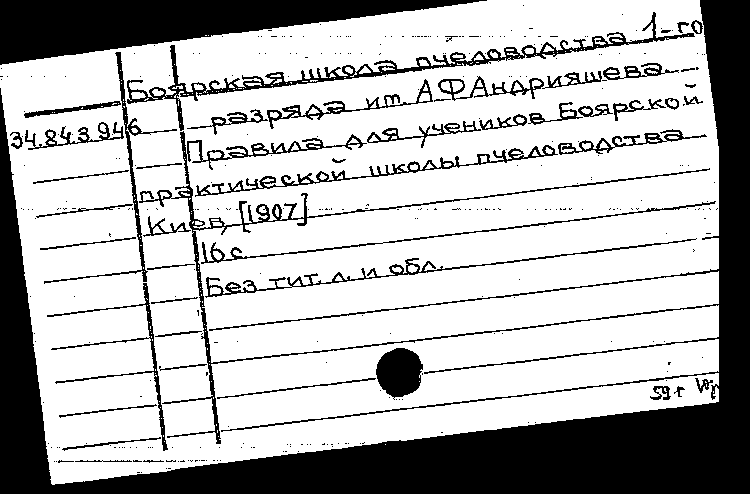 Боярская школа пчеловодства 1-го
разряда им. А.Ф.Андрияшева.
34.84.3.946
Правила для учеников Боярской
практической школы пчеловодства
Киев, [1907]
16 с.
Без тит. л. и обл.
59 г